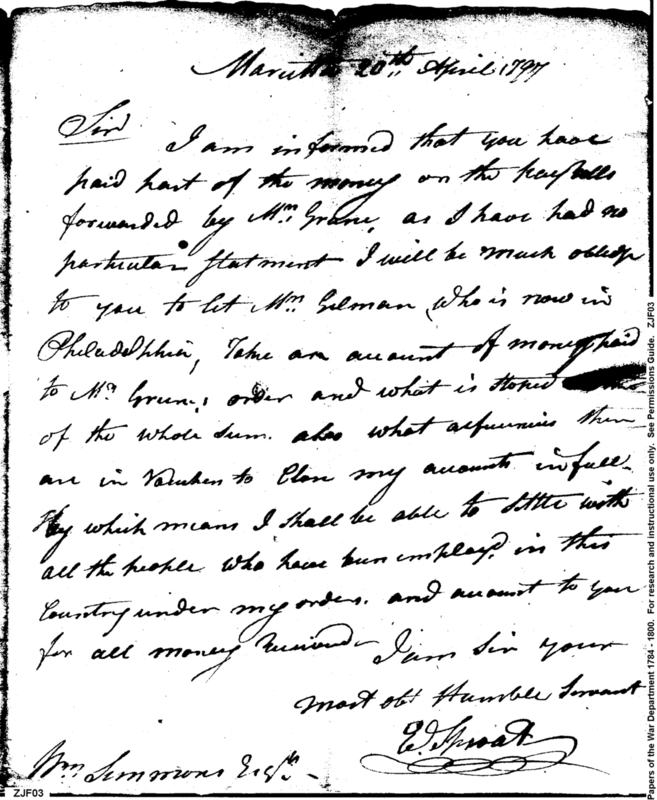 Marietta 20th April 1797
Sir I am informed that you have
paid part of the money on the pay bills
forwarded by Mr. Green, as I have had no
particular Statment I will be much obledge
to you to let Mr. Gilman, who is now in
Philadelphia, Take an account of money paid
to Mr. Green,s order and what is Stoped
of the whole Sum. also what defiencies there
are in Vouchers to Close my accounts in full.
By which means I shall be able to settle with
all the people who have been employd. in this
Country under my orders. and account to you
for all money Received
I am Sir your
most obt. Humble Servant
Ed. Sproat
Wm Simmons Esqr.
ZJF03
Papers of the War Department 1784 - 1800. For research and instructional use only. See Permissions Guide. ZJF03